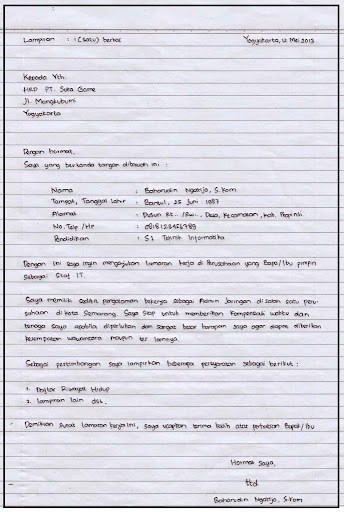 Lampiran : 1 (satu) berkas Yogyakarta, 12 Mei 2013
Kepada Yth.
HRD PT. Suka Game
Jl. Mangkubumi
Yogyakarta
Dengan hormat,
Saya yang bertanda tangan dibawah ini :
Nama : Baharudin Ngatijo, S.Kom
Tempat, Tanggal Lahir : Bantul, 25 Juni 1987
Alamat : Dusun Rt.. /Rw.., Desa, Kecamatan, Kab, Propinsi
No. Telp /Hp : 0818123456789
Pendidikan : S1 Teknik Informatika
Dengan ini saya ingin mengajukan lamaran kerja di Perusahaan yang Bapak/Ibu pimpin
sebagai Staf IT.
Saya memiliki sedikit pengalaman bekerja sebagai Admin Jaringan di salah satu peru-
sahaan di kota Semarang. Saya siap untuk memberikan kompensasi waktu dan
tenaga saya apabila diperlukan dan sangat besar harapan saya agar dapat diberikan
kesempatan wawancara maupun tes lainnya.
Sebagai pertimbangan saya lampirkan beberapa persyaratan sebagai berikut :
1. Daftar Riwayat Hidup
2. lampiran lain dsb.
Demikian Surat lamaran kerja ini, saya ucapkan terima kasih atas perhatian Bapak/Ibu
Hormat Saya,
ttd
Baharudin Ngatijo, S.Kom